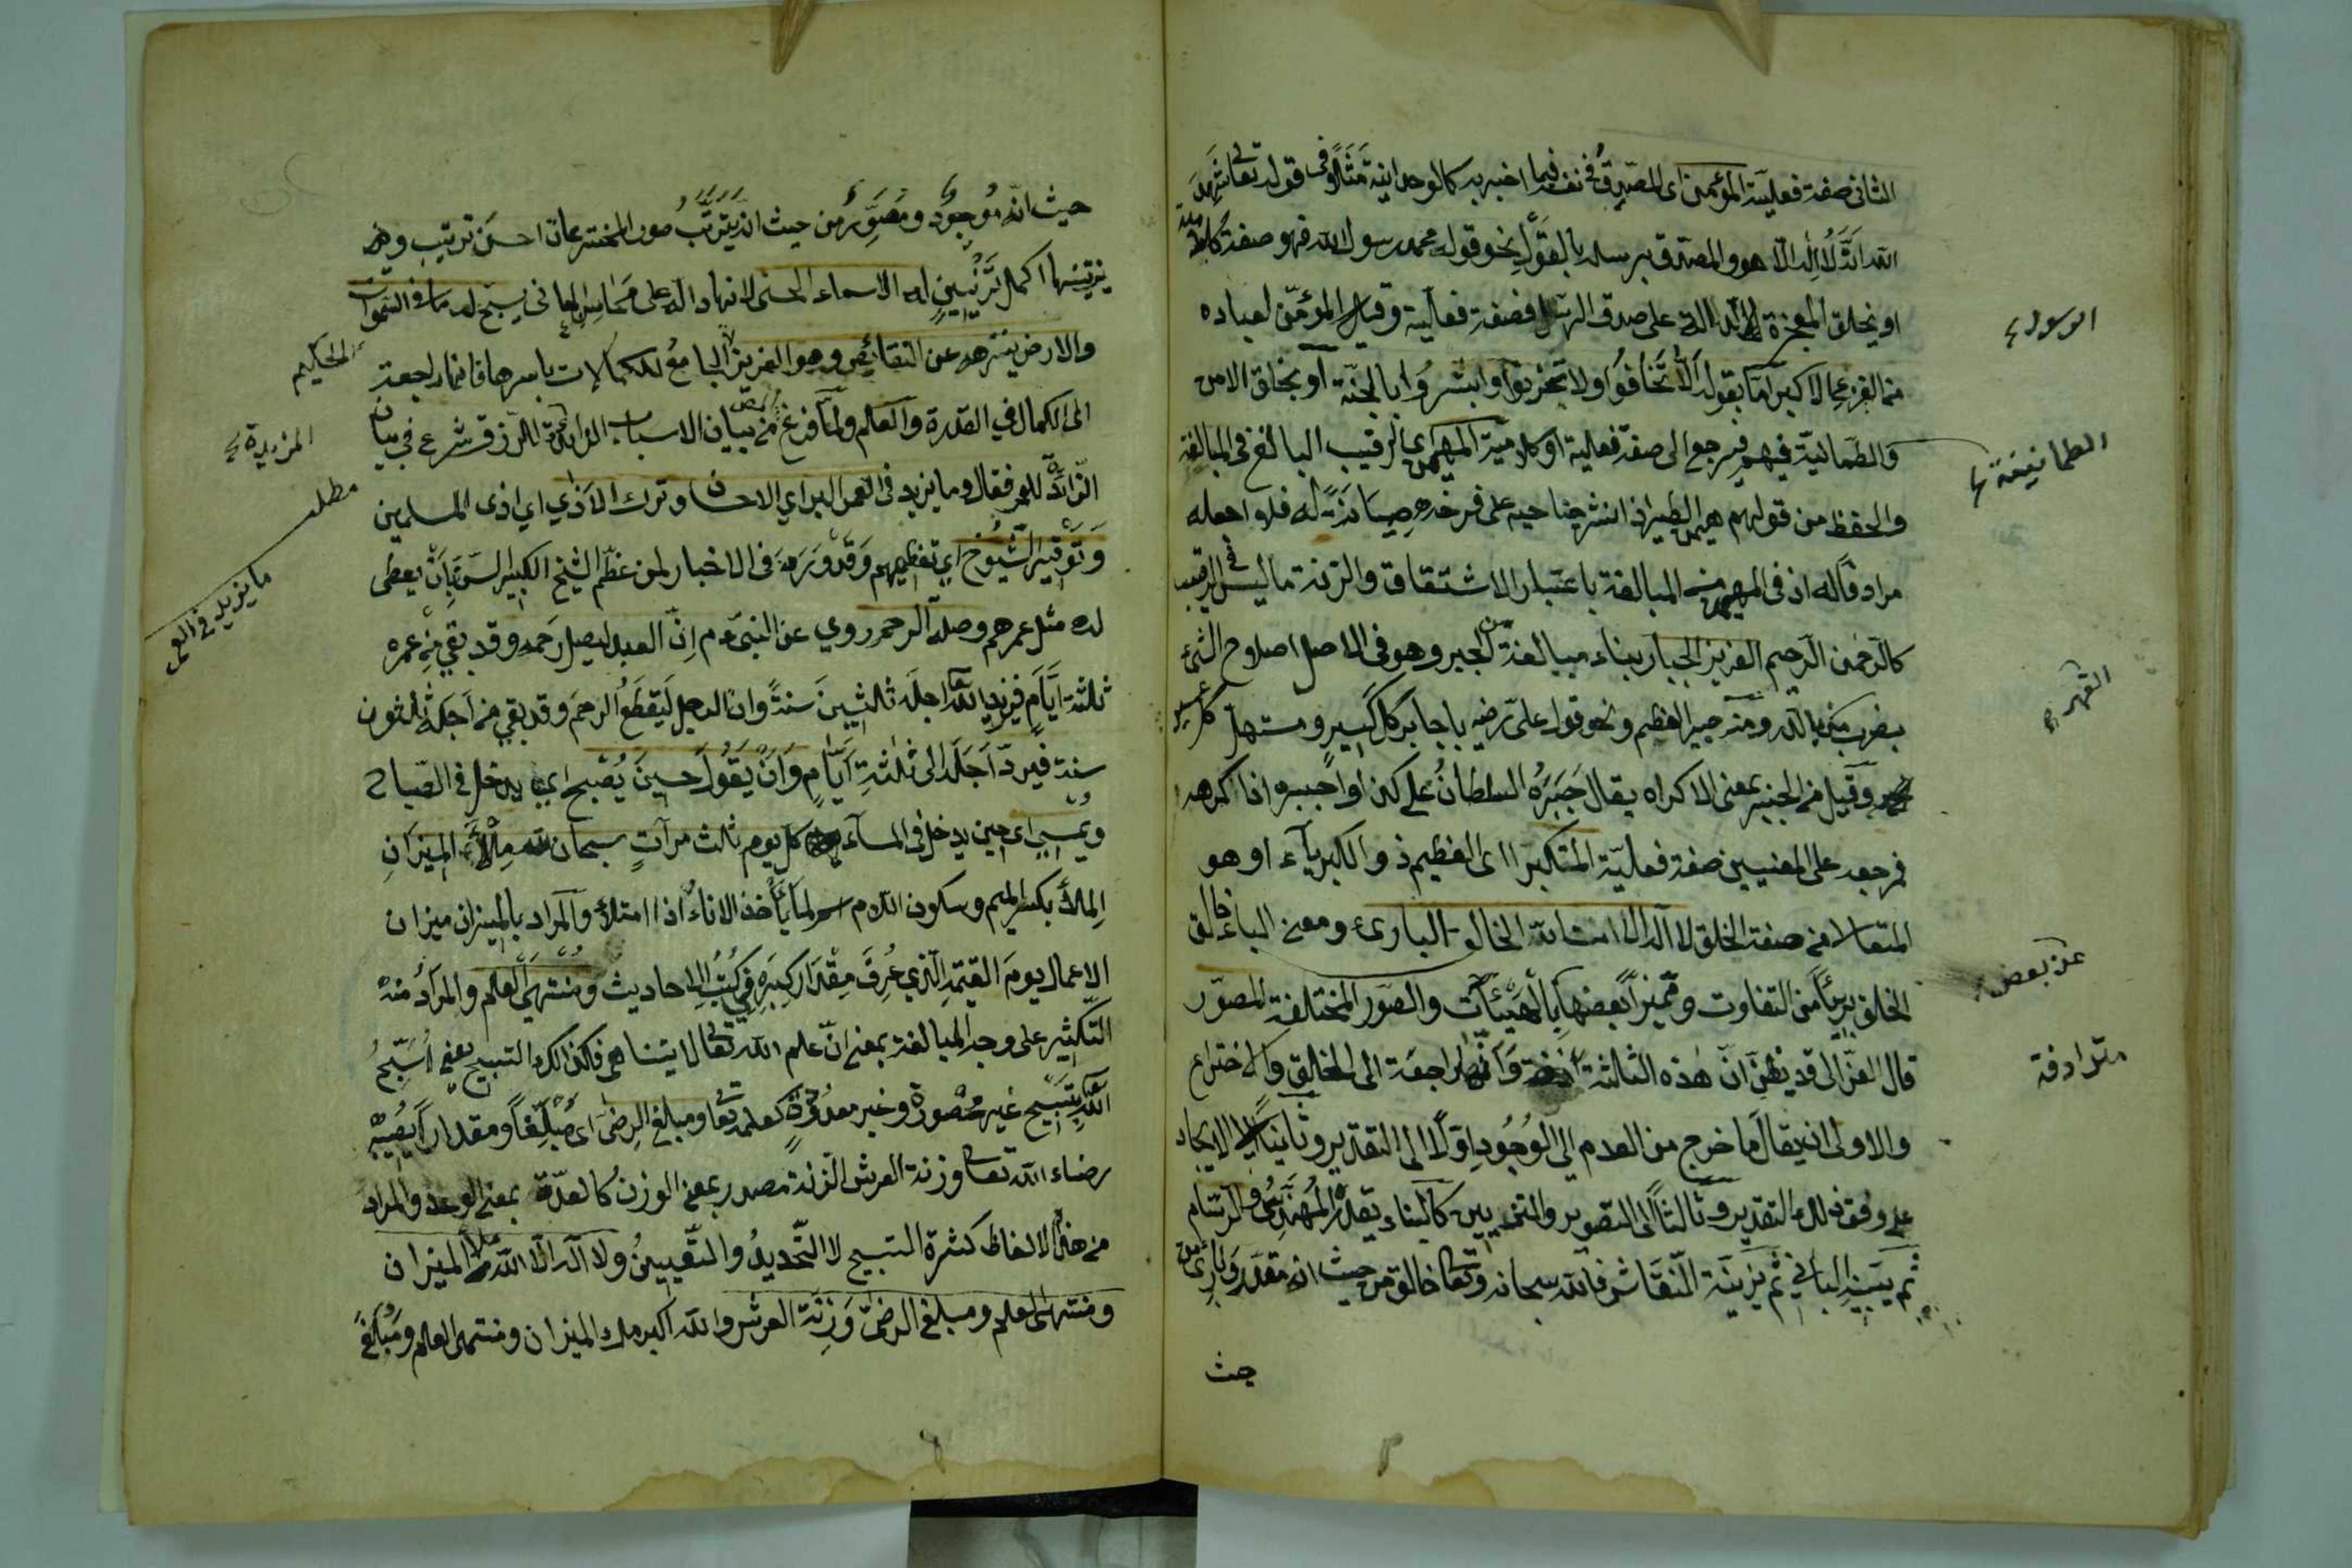 الثانى صفة فعليّة المؤمن اى المصدّق نفسه فيما اخبر به كالوحدانية مثلا فى قوله تعالى شهد
الله انّه لا اله الّا هو والمصدّق برسله بالقول نحو قوله محمد رسول الله فهو صفة كلامية
او بخلق المعجزة الدالة على صدق الرسل فصفة فعلية وقيل المؤمّن لعباده
من الفزع الاكبر امّا بقوله الّا تخافوا ولا تحزنوا وابشروا بالجنّة او بخلق الامن
والطمانية فيهم فيرجع الى صفة فعلية او كلامية المهيمن اى الرقيب البالغ فى المبالغة
والحفظ من قولهم هيمن الطير اذا نشر جناحيه على فرخه صيانة له فلا وجه
مرادفا له اذ فى المهيمن من المبالغة باعتبار الاشتقاق والزنة ما ليس فى الرقيب
كالرّحمن الرّحيم العزيز الجبار بناء مبالغة من الجبر وهو فى الاصل اصلاح الشئ
بضرب من القهر ومنه جبر العظم ونحو قول علىّ رضيه يا جابر كل كسير ومسهل كل عسير
وقيل من الجبر بمعنى الاكراه يقال جبره السلطان على كذا واجبره اذا اكرهه
فمرجعه على المعنيين صفة فعليّة المتكبر اى العظيم ذو الكبرياء او هو
المتعال من صفة الخلق لا اله الا انت الخالق البارئ ومعنى البارئ خالق
الخلق بريئا من التفاوت ومميزا بعضها بالهيئات والصور المختلفة المصوّر
قال الغزّالى قد يظنّ انّ هذه الثلاثة وانّها راجعة الى الخلق والاختراع
والاولى ان يقال ما خرج من العدم الى الوجود اوّلا الى التقدير وثانيا الى الايجاد
على وفق ذلك التقدير وثالثا الى التصوير والتزيين كالبناء يقدّر المهندس والرسّام
ثم يبنيه البانى ثم يزينه النقّاش فالله سبحانه وتعالى خالق من حيث انه مقدر وبارئ من
حيث
الرسول
الطمانينة
القهر
عن بعض
مترادفة
حيث انّه موجود ومصوّر من حيث انه يترتّب صور المخترعات احسن ترتيب و
يزيّنها اكمل تزيين له الاسماء الحسنى لانها دالّة على محاسن المعانى يسبح له ما فى السموات
والارض يتنزهه عن النقائص وهو العزيز الجامع للكمالات باسرها فانها راجعة
الى الكمال فى القدرة والعلم ولمّا فرغ من بيان الاسباب الزائدة للرزق شرع فى بيان
الزّائدة للعمر فقال وما يزيد فى العمر البر اى الاحسان وترك الاذى اى اذى المسلمين
وتوقير الشيوخ اى تعظيمهم وقد ورد فى الاخبار لمن عظّم الشيخ الكبير السن بان يعطى
له مثل عمرهم وصلة الرحم روى عن النبى عم ان العبد ليصل رحمه وقد بقى من عمره
ثلثة ايام فيزيد الله اجله ثلثين سنة وان الرجل ليقطع الرحم وقد بقى من اجله ثلثون
سنة فيردّ اجله الى ثلثة ايّام وان يقول حين يصبح اى يدخل فى الصباح
ويمسى اى حين يدخل فى المساء كل يوم ثلث مرات سبحان الله ملأ الميزان
الملأ بكسر الميم وسكون اللام اسم لما ياخذ الاناء اذا امتلأ والمراد بالميزان ميزان
الاعمال يوم القيمة الذى عرف مقدار كبره فى كتب الاحاديث ومنتهى العلم والمراد منه
التكثير على وجه المبالغة بمعنى انّ علم الله تعالى لا يتناهى فكذلك التسبيح يعنى اسبّح
الله تسبيح غير محصورة وغير معدودة كعلمه تعالى ومبلغ الرضى اى مبلغا ومقدارا يصيبه
رضاء الله تعالى وزنة العرش الزنة مصدر بمعنى الوزن كالعدّة بمعنى الوعد والمراد
من هذه الالفاظ كثرة التسبيح لا التحديد والتعيين ولا اله الا الله ملأ الميزان
ومنتهى العلم ومبلغ الرضى وزنة العرش والله اكبر ملأ الميزان ومنتهى العلم ومبلغ
الحكيم
المزيدة
مطلب
ما يزيد فى العمر